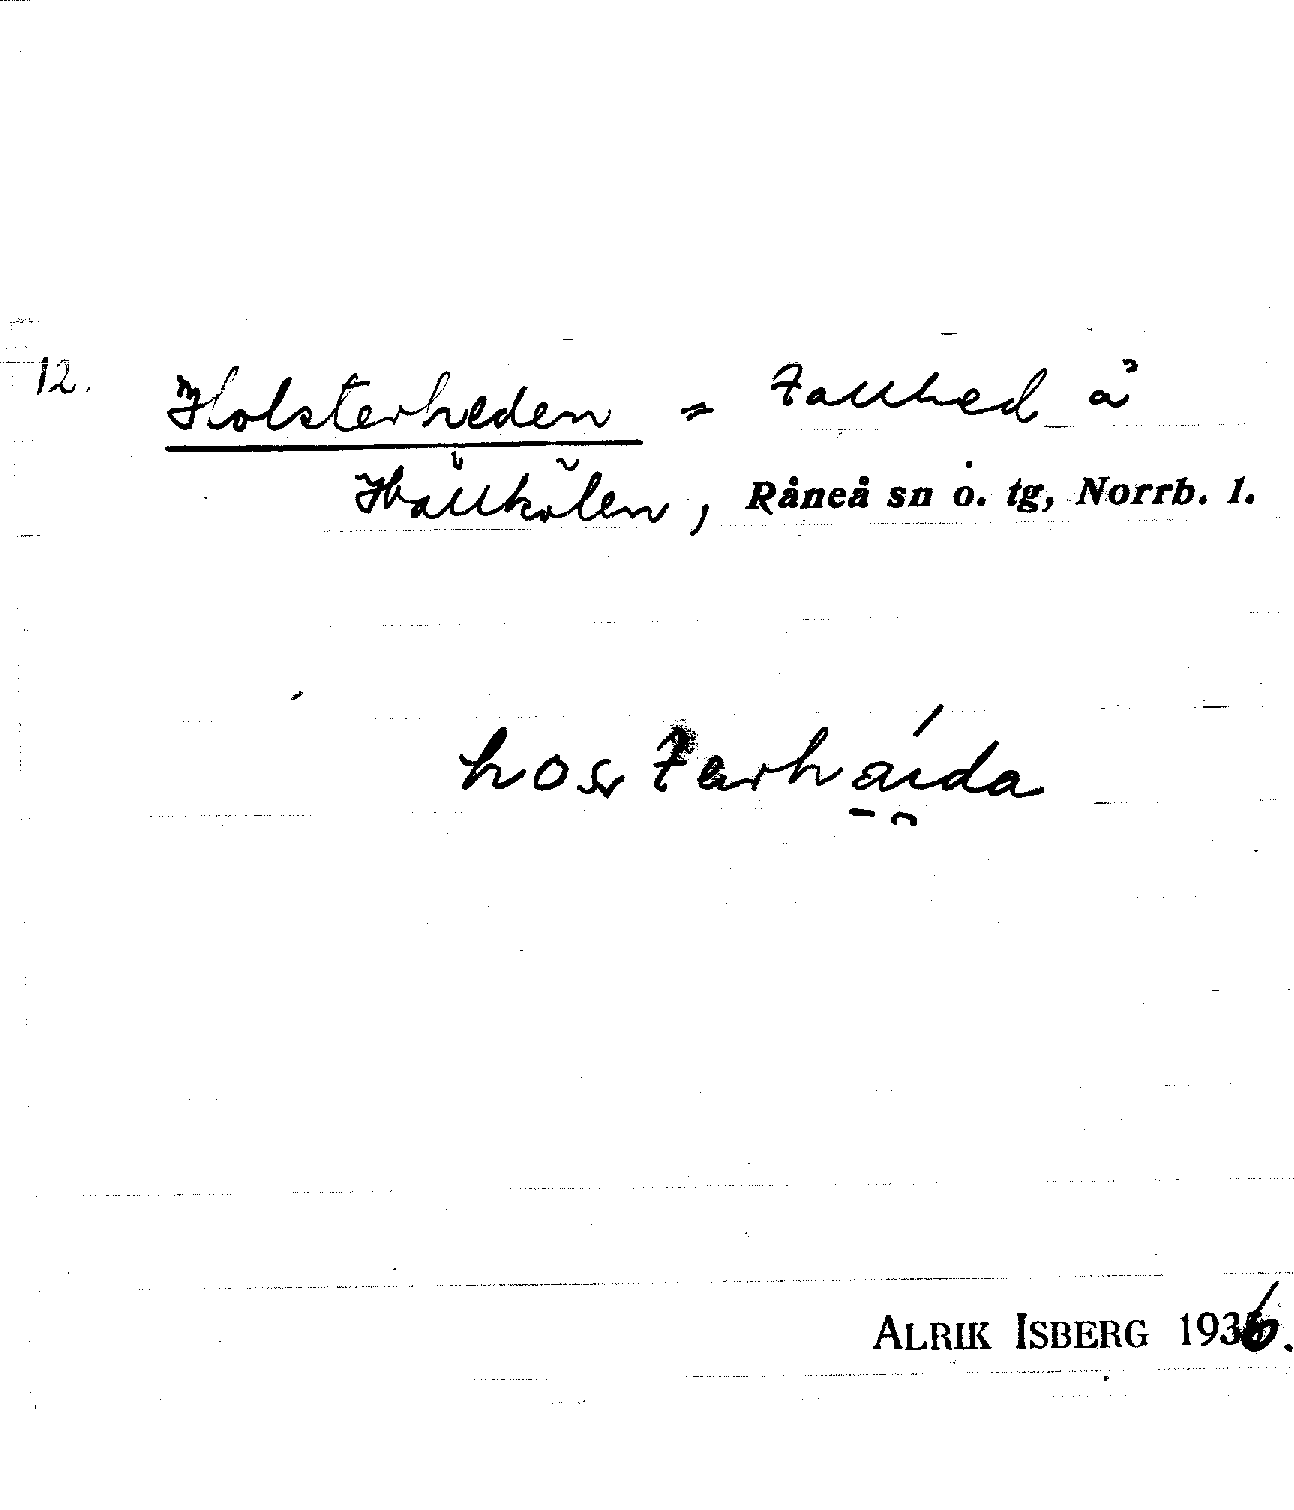 12. Holsterheden = tallhed å
Hällkölen, Råneå sn o. tg, Norrb. l.
hosterháida
ALRIK ISBERG 1936.